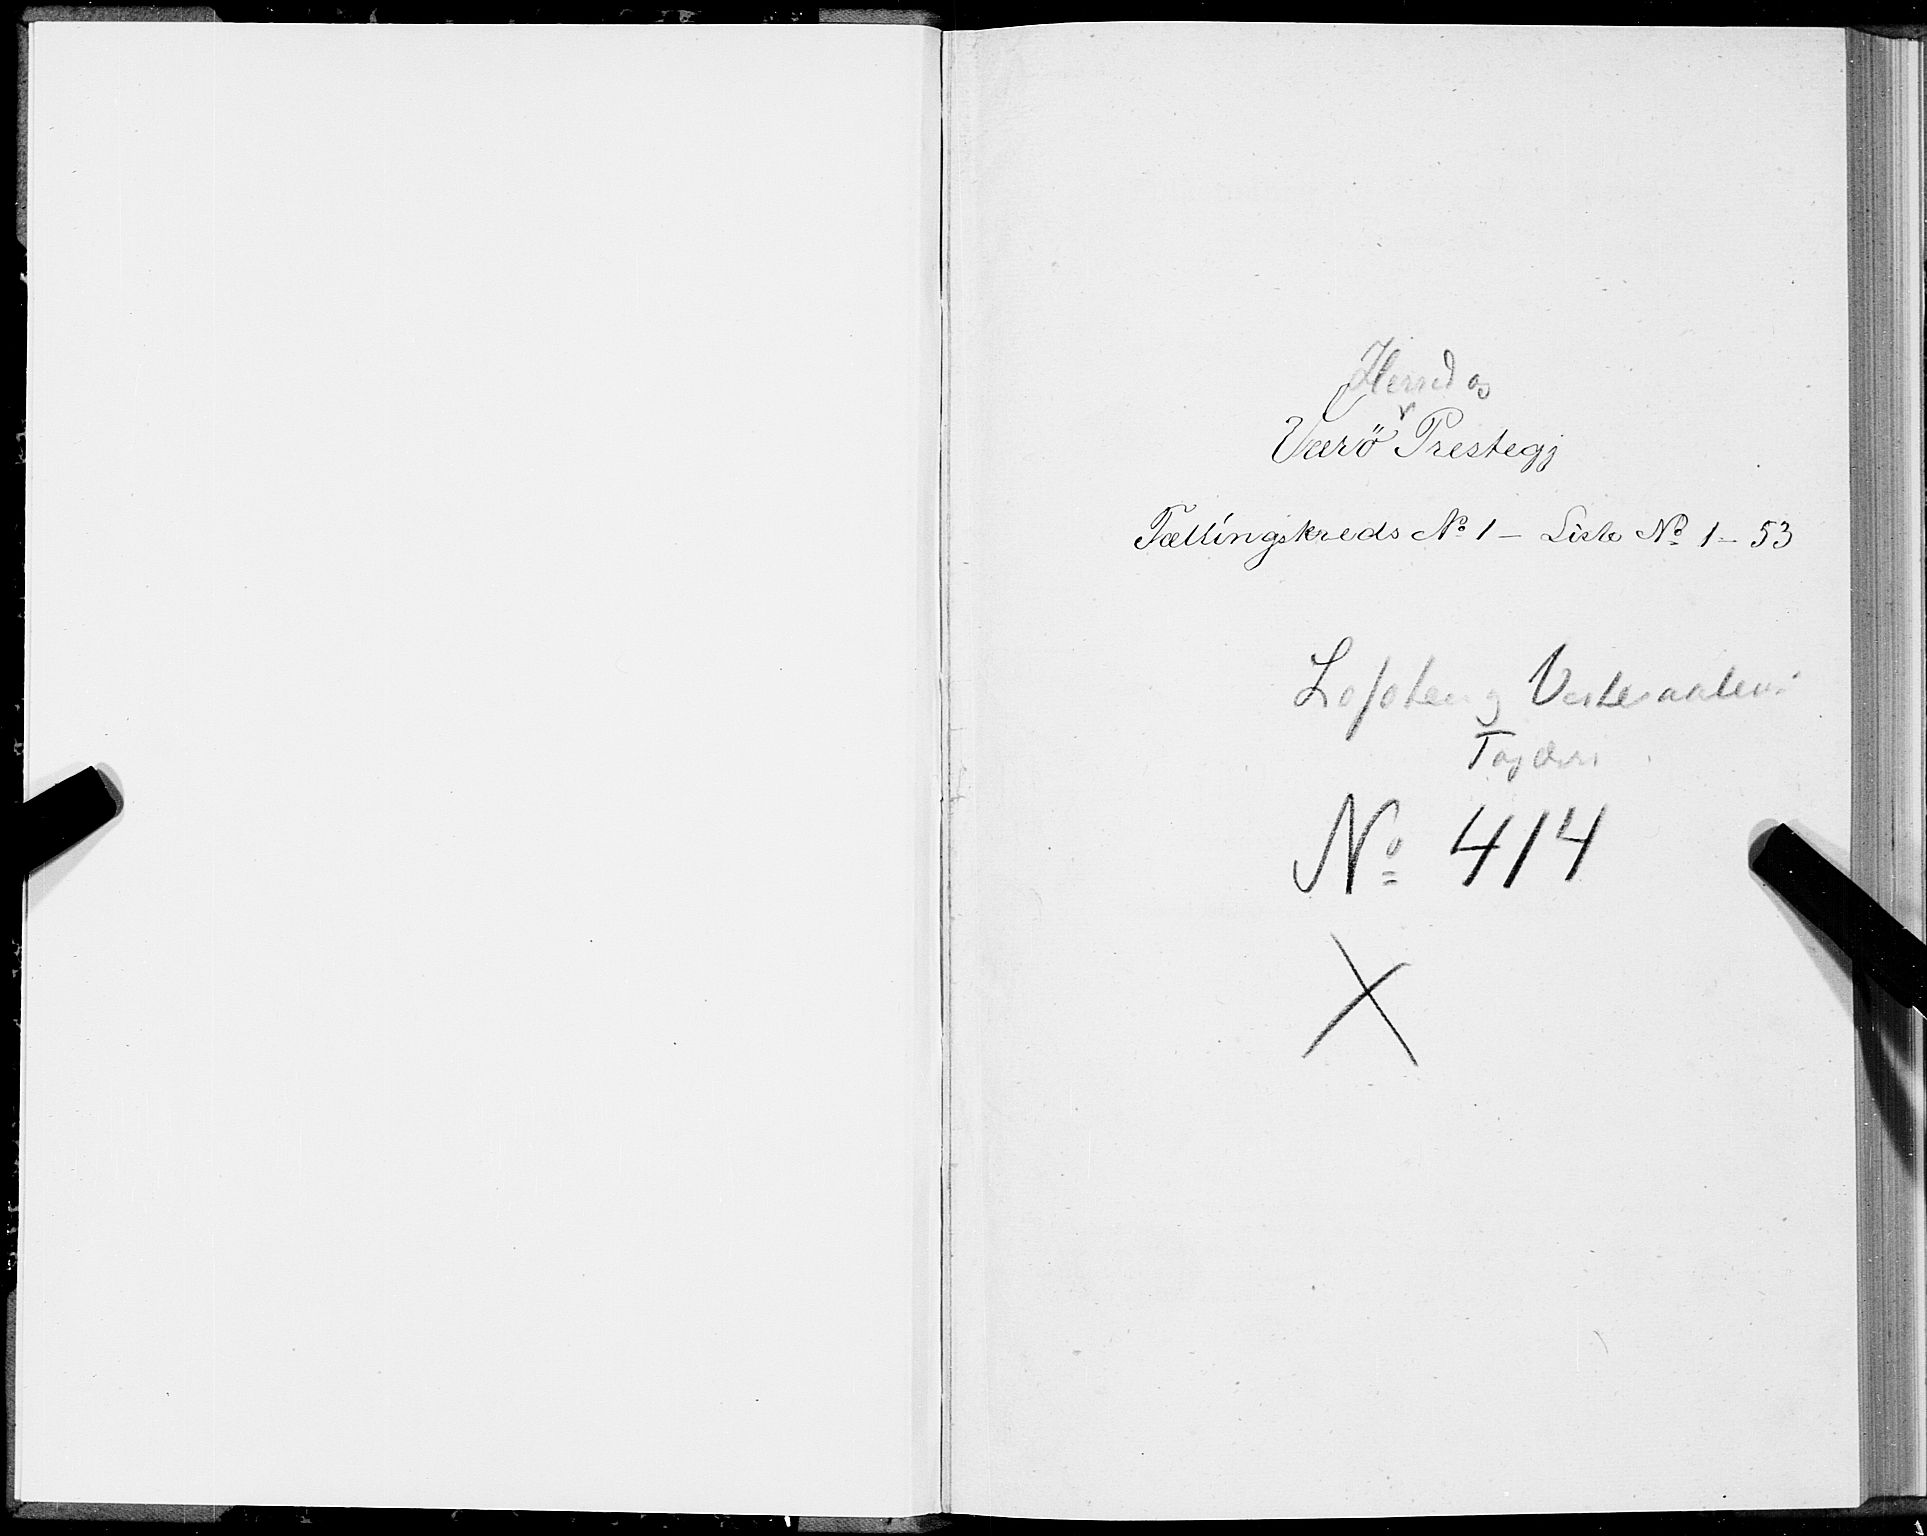 Herred og
Værö Prestegj
Tællingskreds No 1 – Liste No 1 – 53
Lofoten og Vesteraalens
Fogderi
No 414
X